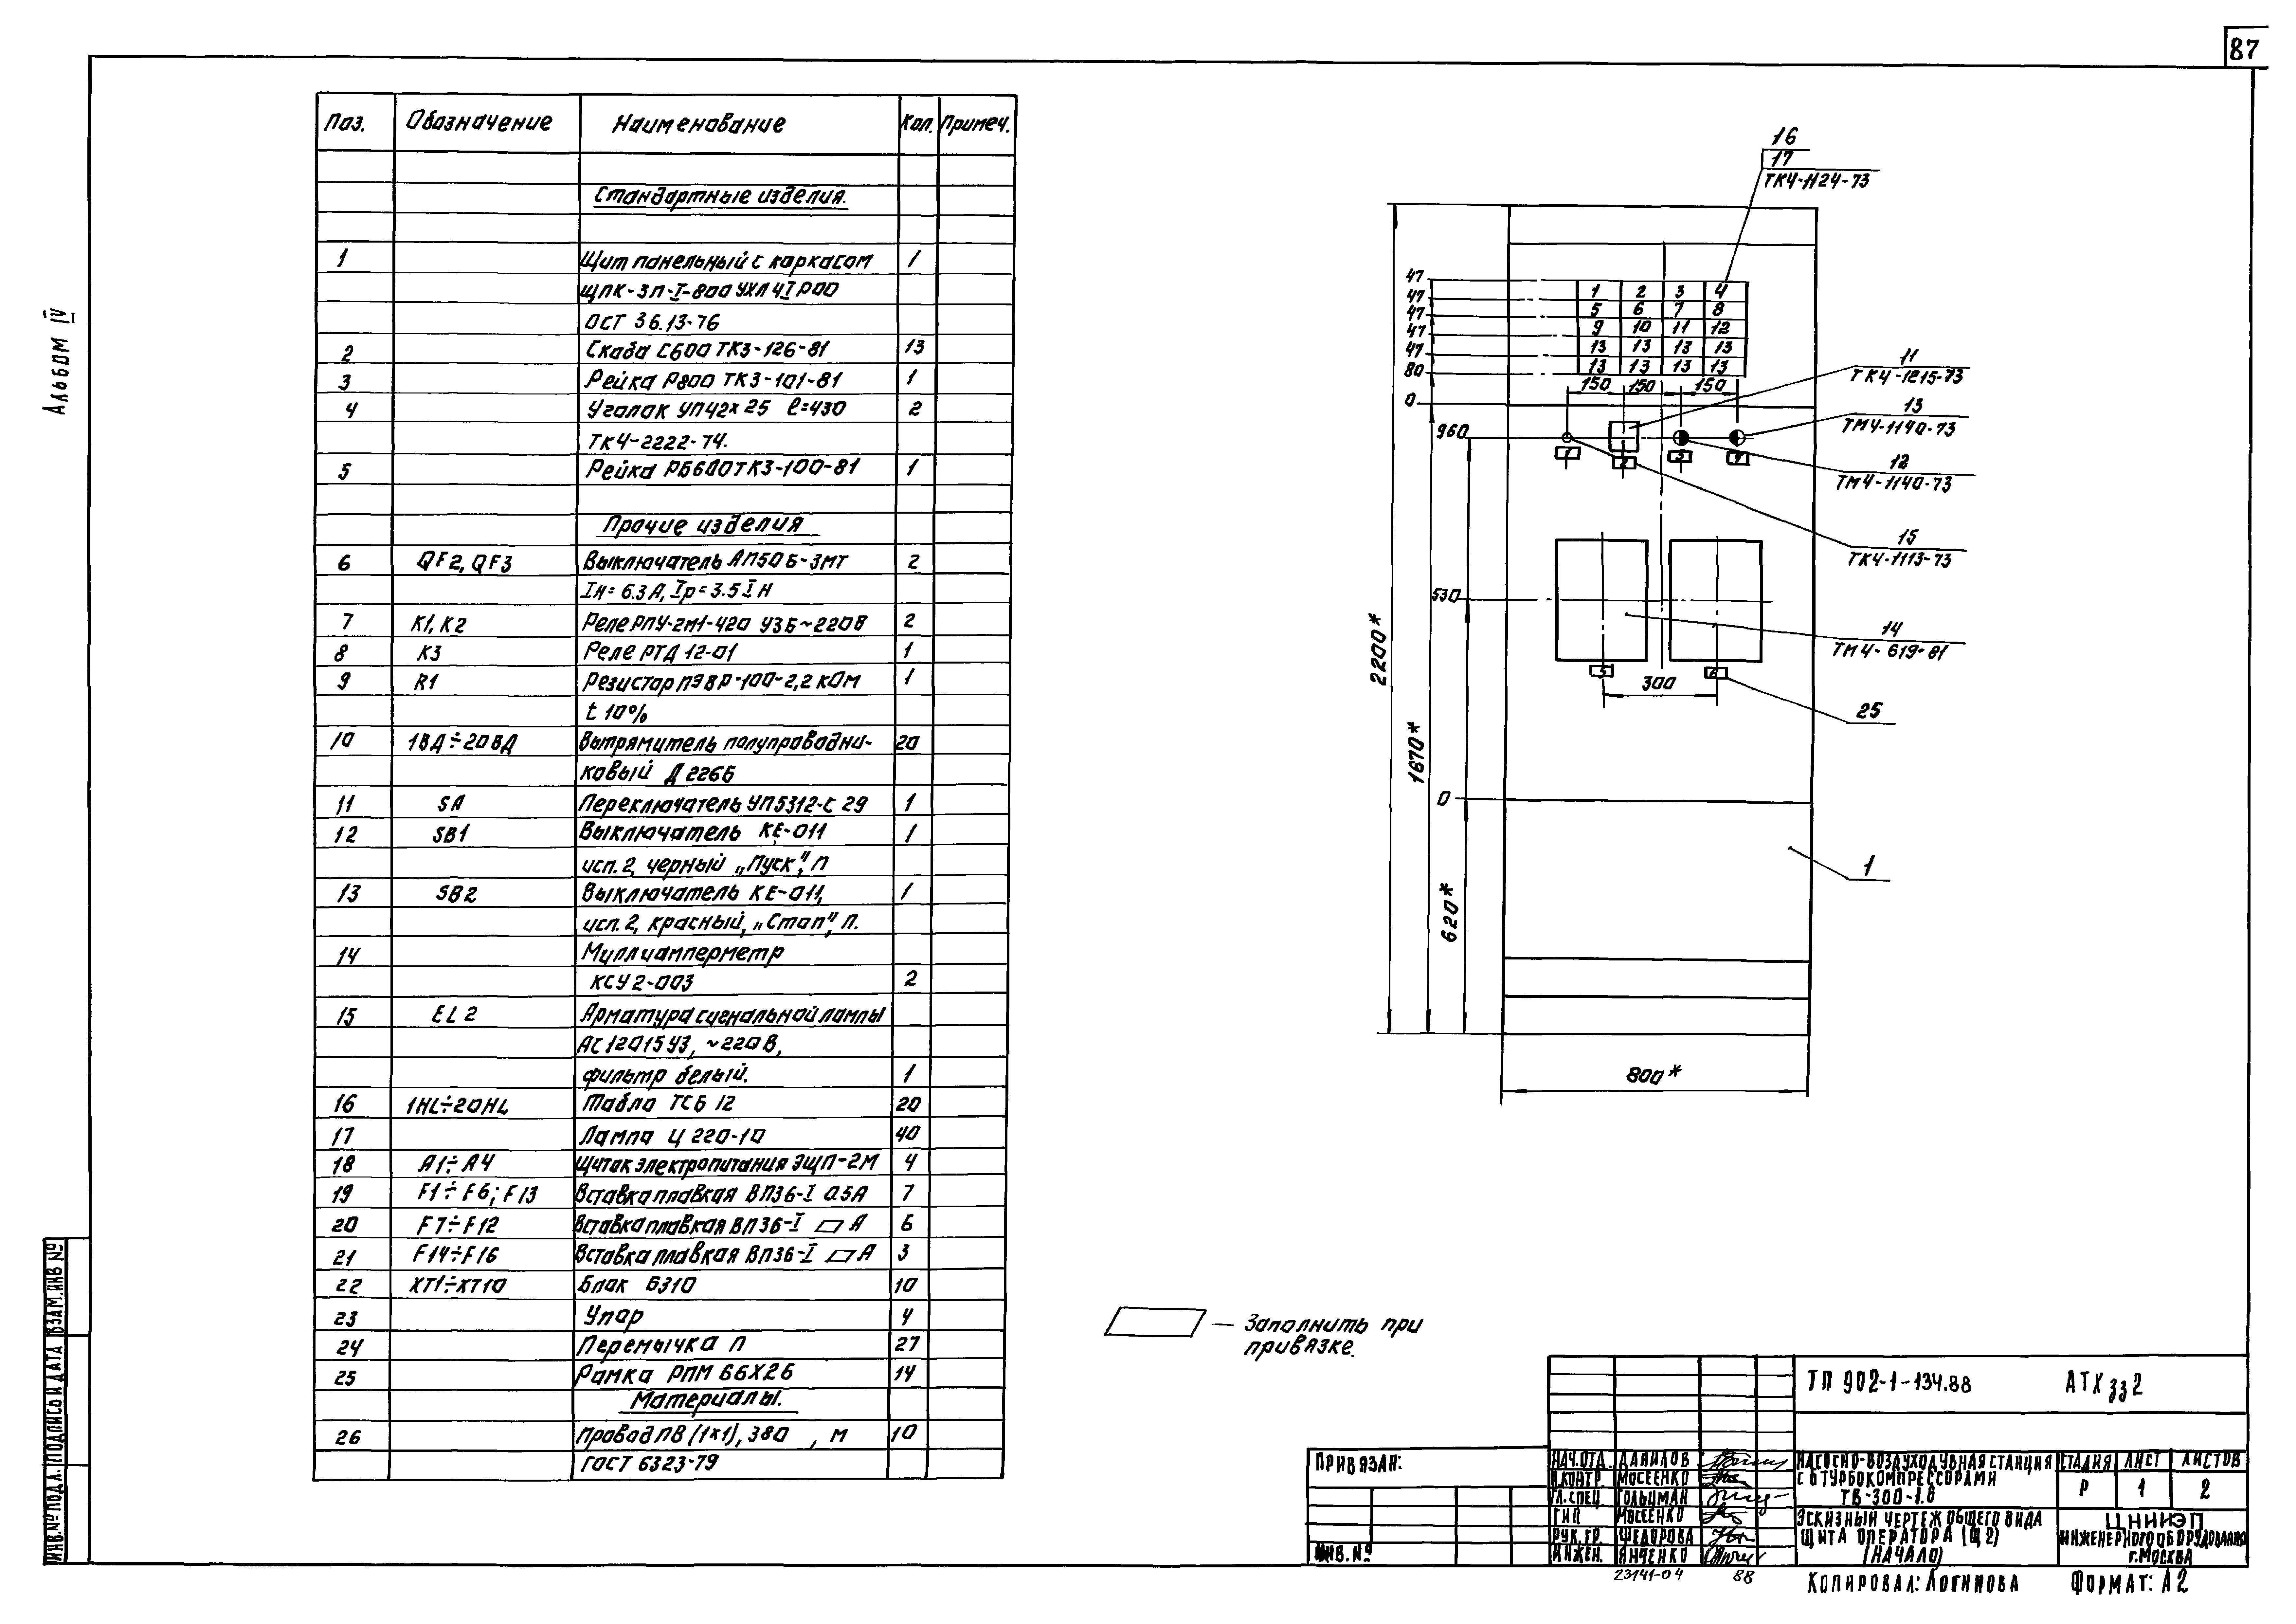 87
Альбом IV
Поз. Обозначение Наименование Кол. Примеч.
Стандартные изделия.
1 Щит панельный с каркасом 1
ЩПК-ЗП-I-800 УХЛ4 IP00
ОСТ 36.13-76
2 Скоба С600 ТК3-126-81 13
3 Рейка Р800 ТК3-101-81 1
4 Уголок УП42х25 ℓ=430 2
ТК4-2222-74.
5 Рейка РБ600 ТК3-100-81 1
Прочие изделия
6 QF2, QF3 Выключатель АП50Б-3МТ 2
Iн=6.3А, Iр=3.5Iн
7 К1, К2 Реле РПУ-2М1-420 УЗБ ~220В 2
8 К3 Реле РТД 12-01 1
9 R1 Резистор ПЭВР-100-2,2 кОм 1
t 10%
10 1ВД÷20ВД Выпрямитель полупроводни- 20
ковый Д226Б
11 SA Переключатель УП5312-С 29 1
12 SB1 Выключатель КЕ-011 1
исп. 2, черный „Пуск", П
13 SB2 Выключатель КЕ-011, 1
исп. 2, красный, „Стоп", П.
14 Миллиамперметр
КСУ2-003 2
15 EL2 Арматура сигнальной лампы
АС12015У3, ~220В,
фильтр белый. 1
16 1HL÷20HL Табло ТСБ 12 20
17 Лампа Ц 220-10 40
18 А1÷А4 Щиток электропитания ЭЩП-2М 4
19 F1÷F6; F13 Вставка плавкая ВП36-I 0.5А 7
20 F7÷F12 Вставка плавкая ВП36-I ▱ А 6
21 F14÷F16 Вставка плавкая ВП36-I ▱ А 3
22 ХТ1÷ХТ10 Блок Б310 10
23 Упор 4
24 Перемычка П 27
25 Рамка РПМ 66Х26 14
Материалы.
26 Провод ПВ (1×1), 380 , м 10
ГОСТ 6323-79
16
17
ТК4-1124-73
47
47
47
47
47
80
0
1 2 3 4
5 6 7 8
9 10 11 12
13 13 13 13
13 13 13 13
150 150 150
11
ТК4-1215-73
13
ТМ4-1140-73
12
ТМ4-1140-73
15
ТК4-1113-73
960
1 2 3 4
530
14
ТМ4-619-81
5 6
300
25
0
1
2200*
1670*
620*
800*
— Заполнить при
привязке.
ТП 902-1-134.88 АТХ ЗЗ2
ПРИВЯЗАН:
ИНВ.№
НАЧ.ОТД. ДАНИЛОВ
Н.КОНТР. МОСЕЕНКО
ГЛ.СПЕЦ. ГОЛЬЦМАН
ГИП МОСЕЕНКО
РУК.ГР. ФЕДОРОВА
ИНЖЕН. ЯНЧЕНКО
НАСОСНО-ВОЗДУХОДУВНАЯ СТАНЦИЯ
С 6 ТУРБОКОМПРЕССОРАМИ
ТВ-300-1.6
СТАДИЯ ЛИСТ ЛИСТОВ
Р 1 2
ЭСКИЗНЫЙ ЧЕРТЕЖ ОБЩЕГО ВИДА
ЩИТА ОПЕРАТОРА (Щ2)
(НАЧАЛО)
ЦНИИЭП
ИНЖЕНЕРНОГО ОБОРУДОВАНИЯ
г.МОСКВА
23141-04 88
КОПИРОВАЛ: ЛОГИНОВА ФОРМАТ: А2
ИНВ.№ ПОДЛ. ПОДПИСЬ И ДАТА ВЗАМ.ИНВ №